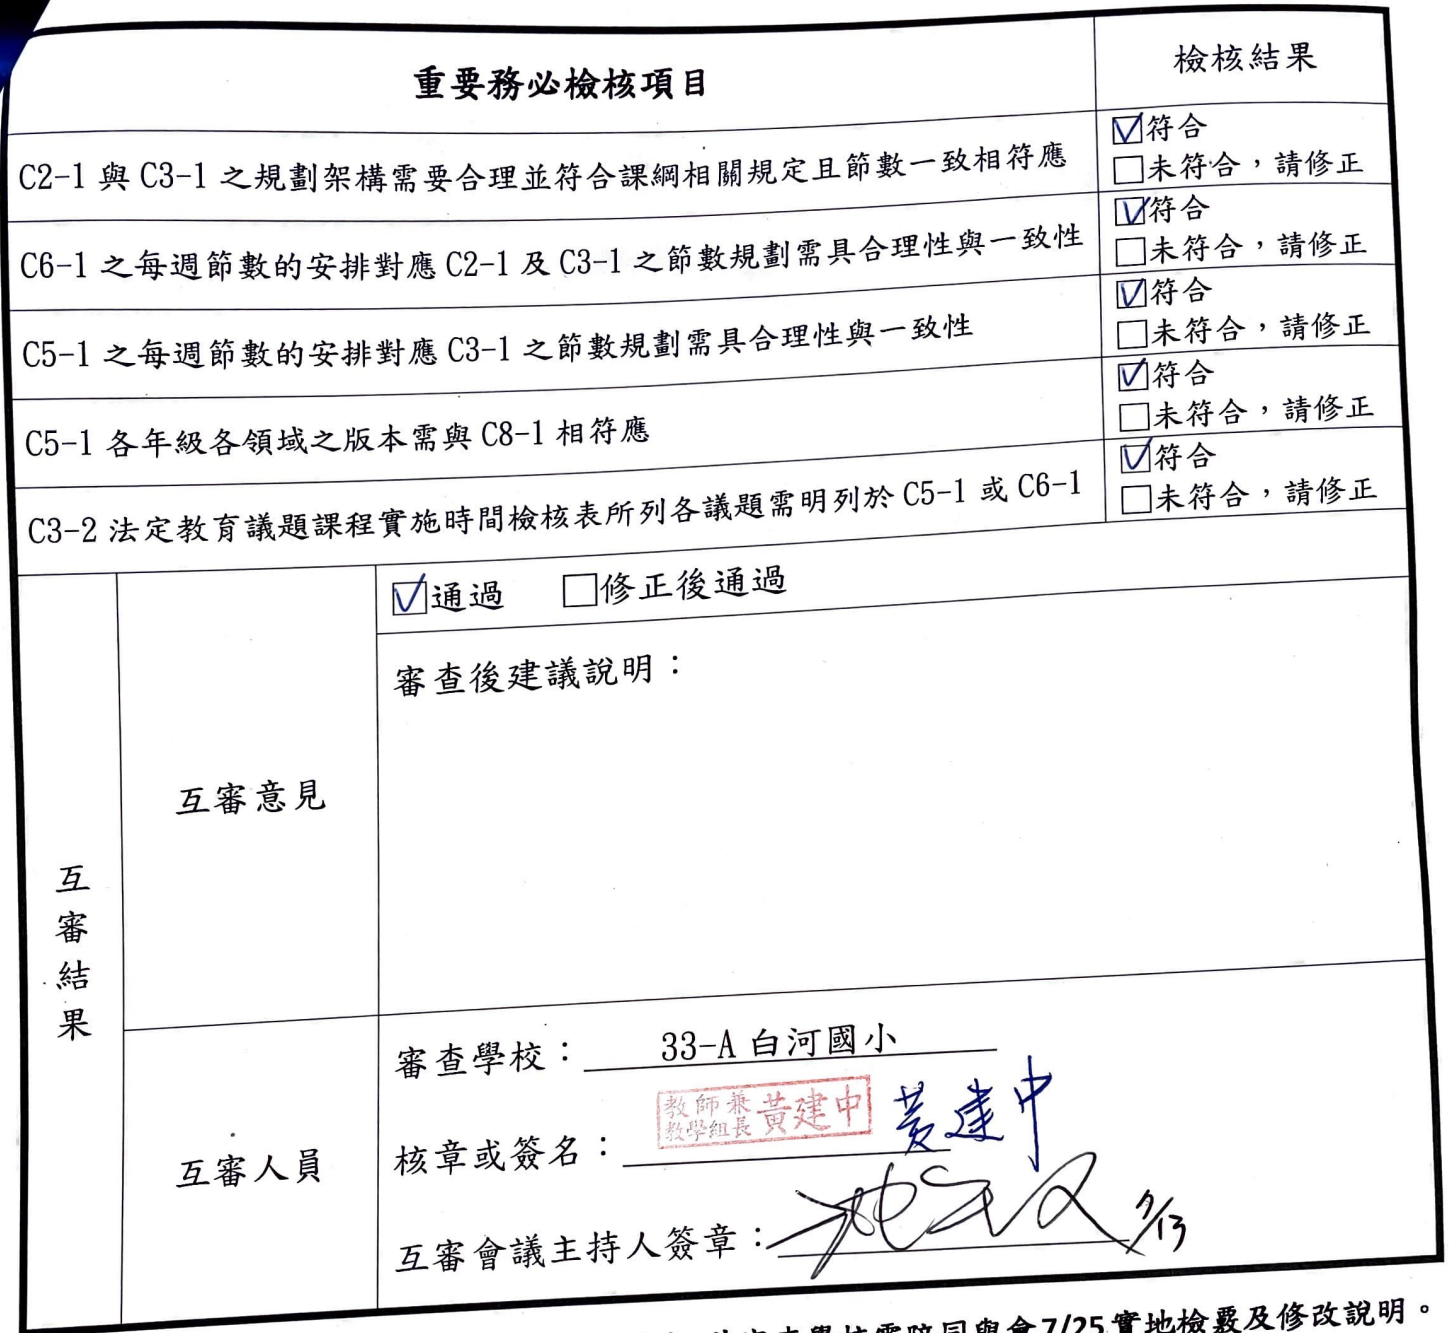 重要務必檢核項目
檢核結果
C2-1 與 C3-1 之規劃架構需要合理並符合課綱相關規定且節數一致相符應
☑符合
□未符合，請修正
C6-1 之每週節數的安排對應 C2-1 及 C3-1 之節數規劃需具合理性與一致性
☑符合
□未符合，請修正
C5-1 之每週節數的安排對應 C3-1 之節數規劃需具合理性與一致性
☑符合
□未符合，請修正
C5-1 各年級各領域之版本需與 C8-1 相符應
☑符合
□未符合，請修正
C3-2 法定教育議題課程實施時間檢核表所列各議題需明列於 C5-1 或 C6-1
☑符合
□未符合，請修正
互審結果
互審意見
☑通過 □修正後通過
審查後建議說明：
互審人員
審查學校： 33-A 白河國小
教師兼
教學組長
黃建中
核章或簽名： 黃建中
互審會議主持人簽章： 7/13
學校需陪同與會7/25實地檢覈及修改說明。